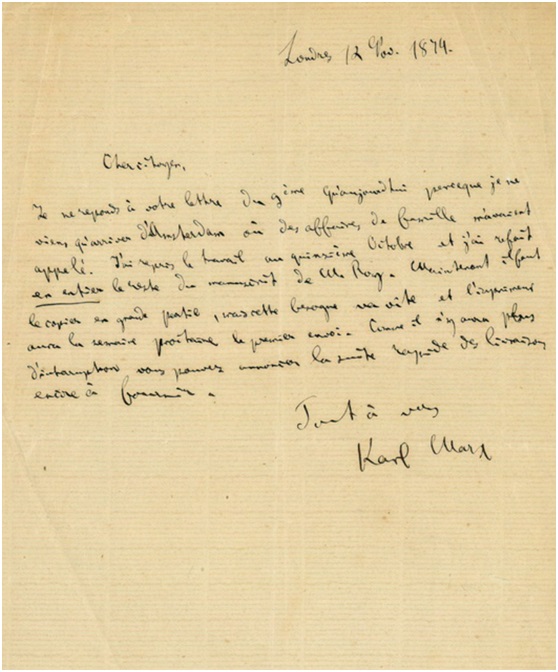 Londres 12 Nov. 1874.
Cher citoyen,
Je ne reponds à votre lettre du 9ème qu'aujourdhui parceque je ne
viens qu'arriver d'Amsterdam où des affaires de famille m'avaient
appelé. J'ai repris le travail au quinzième Octobre et j'ai refait
en entier le reste du manuscrit de M. Roy. Maintenant il faut
le copier en grande partie, mais cette besogne va vite et l'imprimeur
aura la semaine prochaine le premier envoi. Comme il n'y aura plus
d'interruption vous pouvez annoncer la suite rapide des livraisons
encore à fournir.
Tout à vous
Karl Marx